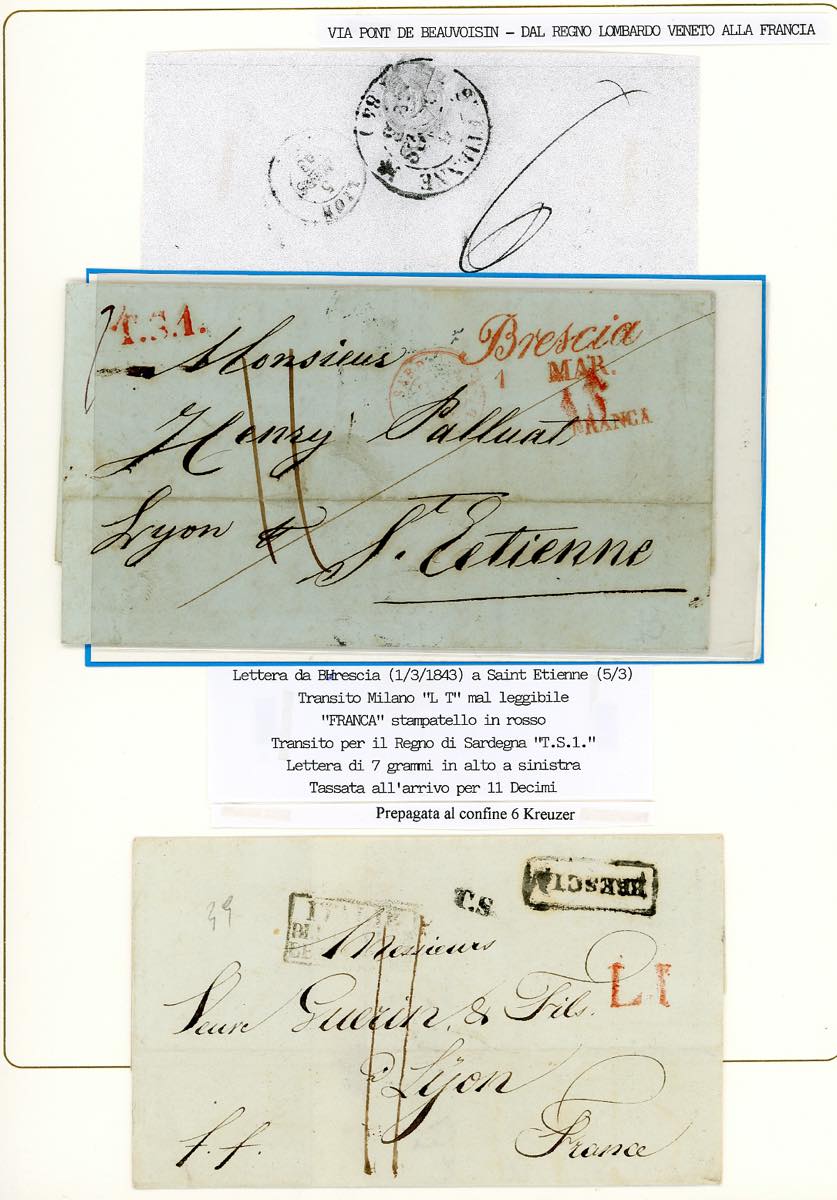 VIA PONT DE BEAUVOISIN – DAL REGNO LOMBARDO VENETO ALLA FRANCIA
S. ETIENNE (84)
LYON
6
T.S.1.
Brescia
1 MAR.
15
FRANCA
SARD
Monsieur
Henry Palluat
Lyon
St. Eetienne
Lettera da BHrescia (1/3/1843) a Saint Etienne (5/3)
Transito Milano "L T" mal leggibile
"FRANCA" stampatello in rosso
Transito per il Regno di Sardegna "T.S.1."
Lettera di 7 grammi in alto a sinistra
Tassata all'arrivo per 11 Decimi
Prepagata al confine 6 Kreuzer
39
T.S
BRESCIA
L I
Messieurs
Veuve Guerin & Fils.
à Lÿon
f. f.
France